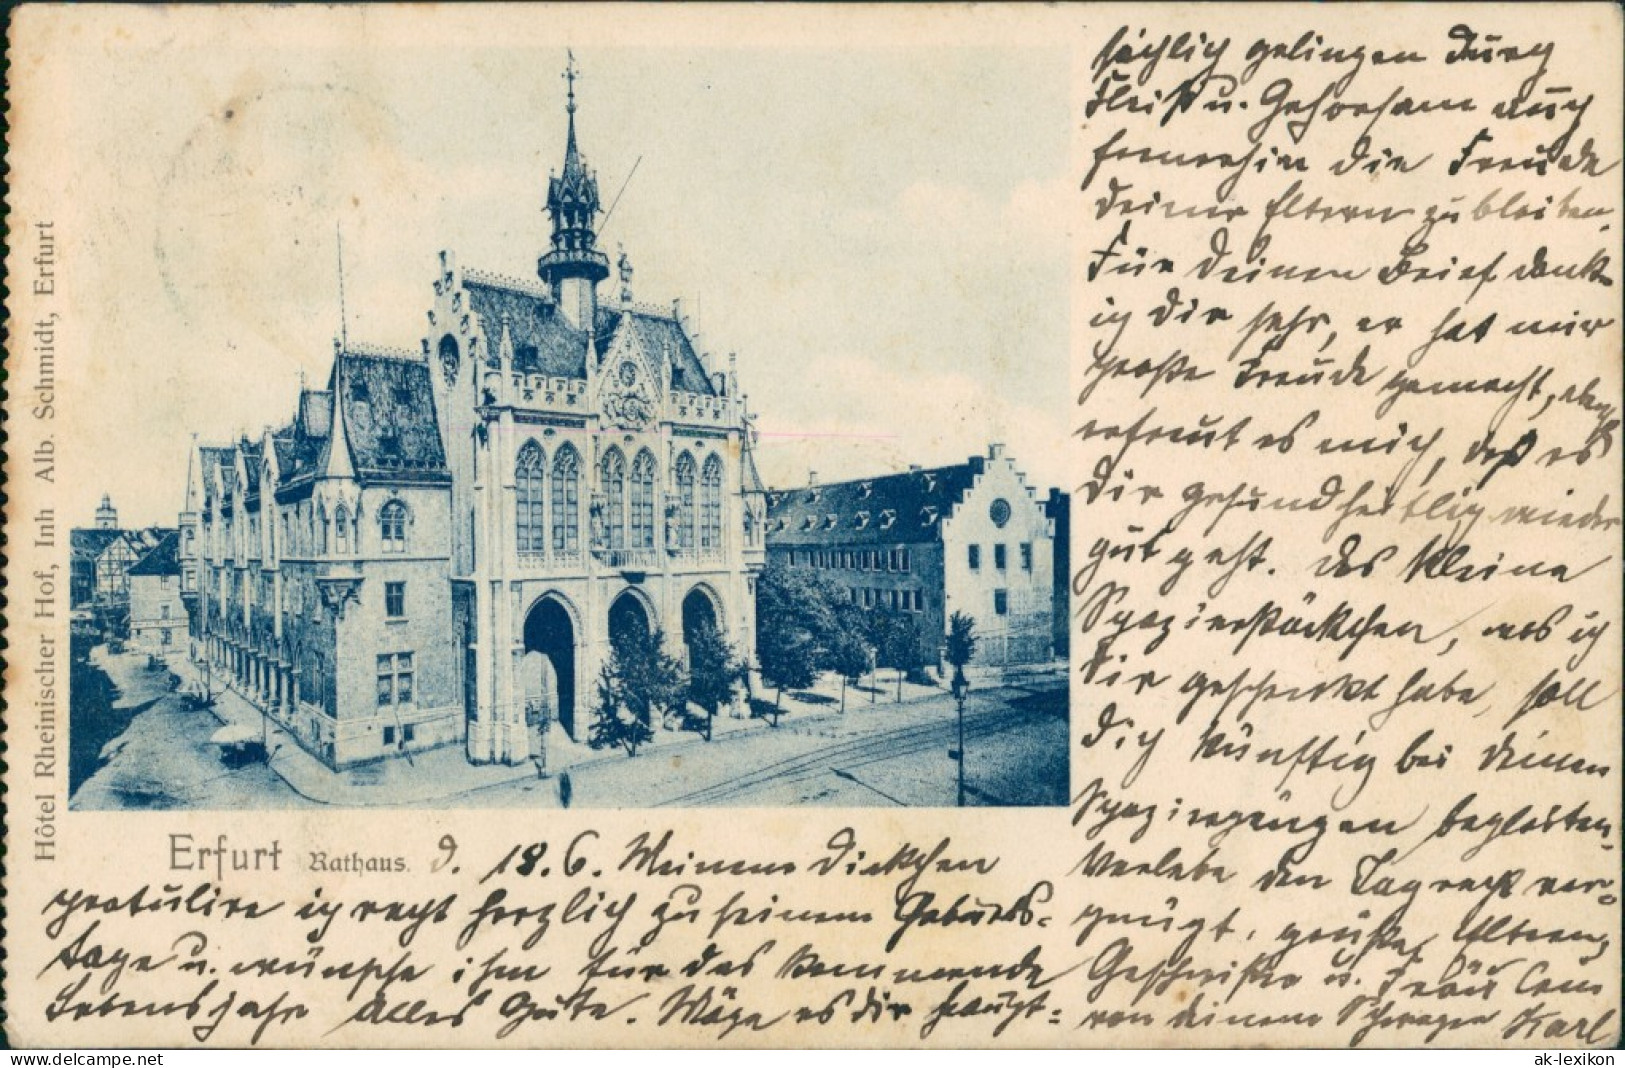 Hôtel Rheinischer Hof, Inh Alb. Schmidt, Erfurt
Erfurt Rathaus.
d. 18.6. Meinem Dickchen
gratulire ich recht herzlich zu seinem Geburts-
tage u. wünsche ihm für das kommende
Lebensjahr Alles Gute. Möge es dir haupt-
sächlich gelingen durch
Fleiß u. Gehorsam auch
fernerhin die Freude
deiner Eltern zu bleiben.
Für deinen Brief danke
ich dir sehr, er hat mir
große Freude gemacht, ebenso
erfreut es mich, daß es
dir gesundheitlich wieder
gut geht. Das kleine
Spazierstöckchen, was ich
dir geschenkt habe, soll
dich künftig bei deinen
Spaziergängen begleiten.
Verlebe den Tag recht ver-
gnügt, grüße Eltern,
Geschwister u. Fräul
von deinem Schwager Karl
ak-lexikon